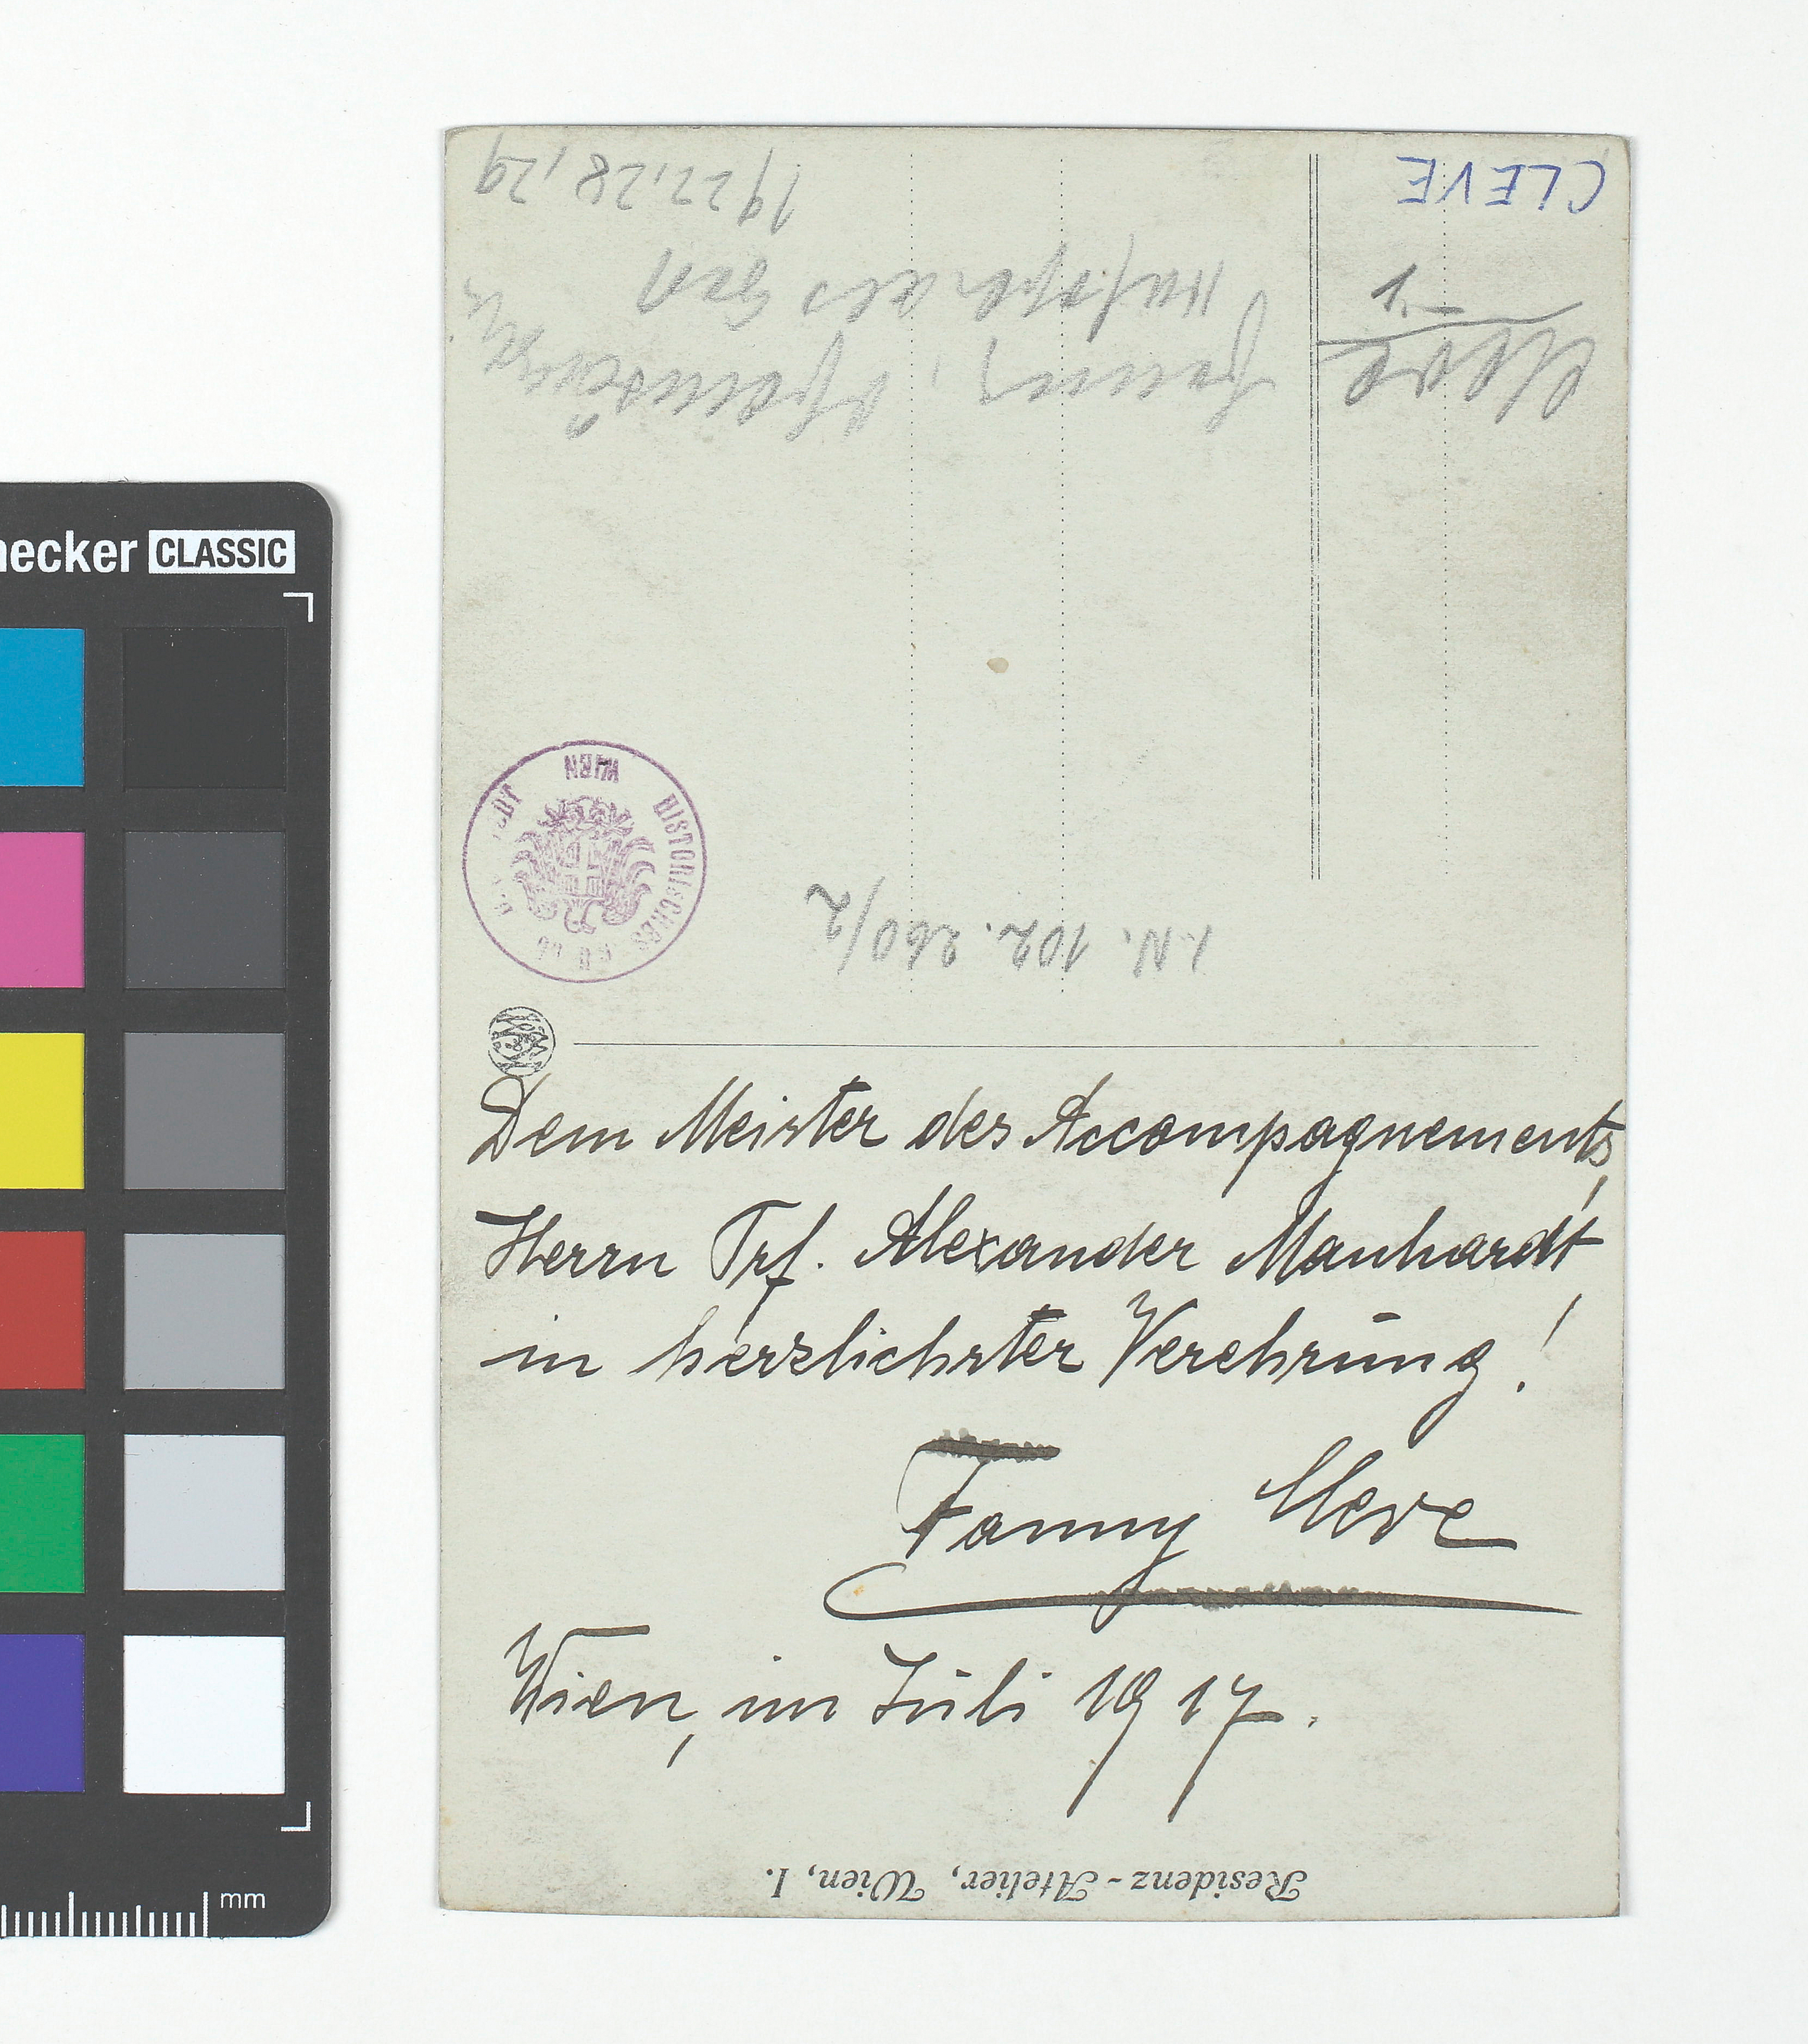 Dem Meister des Accompagnements,
Herrn Prf. Alexander Manhardt
in herzlichster Verehrung!
Fanny Cleve
Wien, im Juli 1917.
Residenz-Atelier, Wien, I.
I.N. 102.260/2
WIEN HISTORISCHES
CLEVE
Cleve
Fanny,
1927, 28, 29
necker CLASSIC
mm